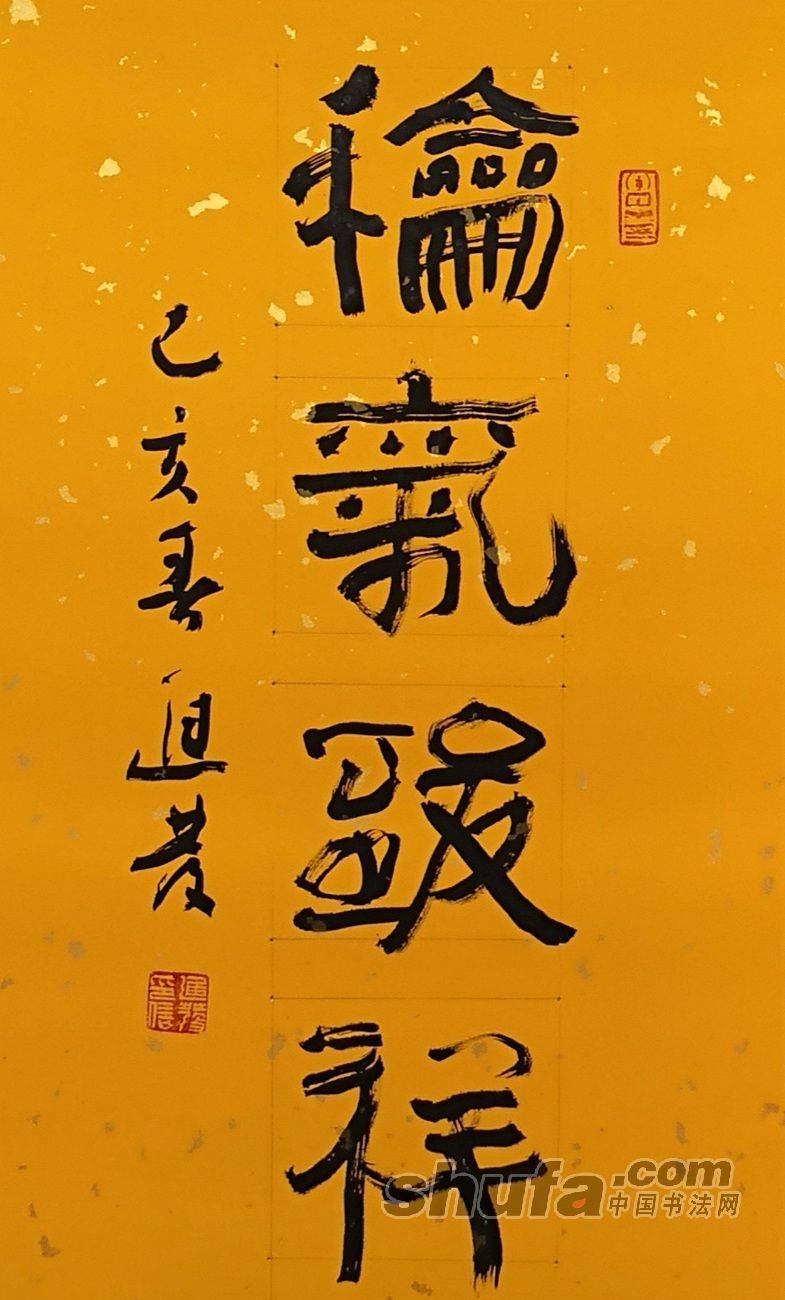 龢氣致祥
己亥春進發
shufa.com
中国书法网